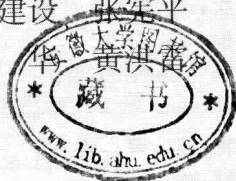 建设 张宪平
黄洪
安徽大学图书馆
藏书
www.lib.ahu.edu.cn